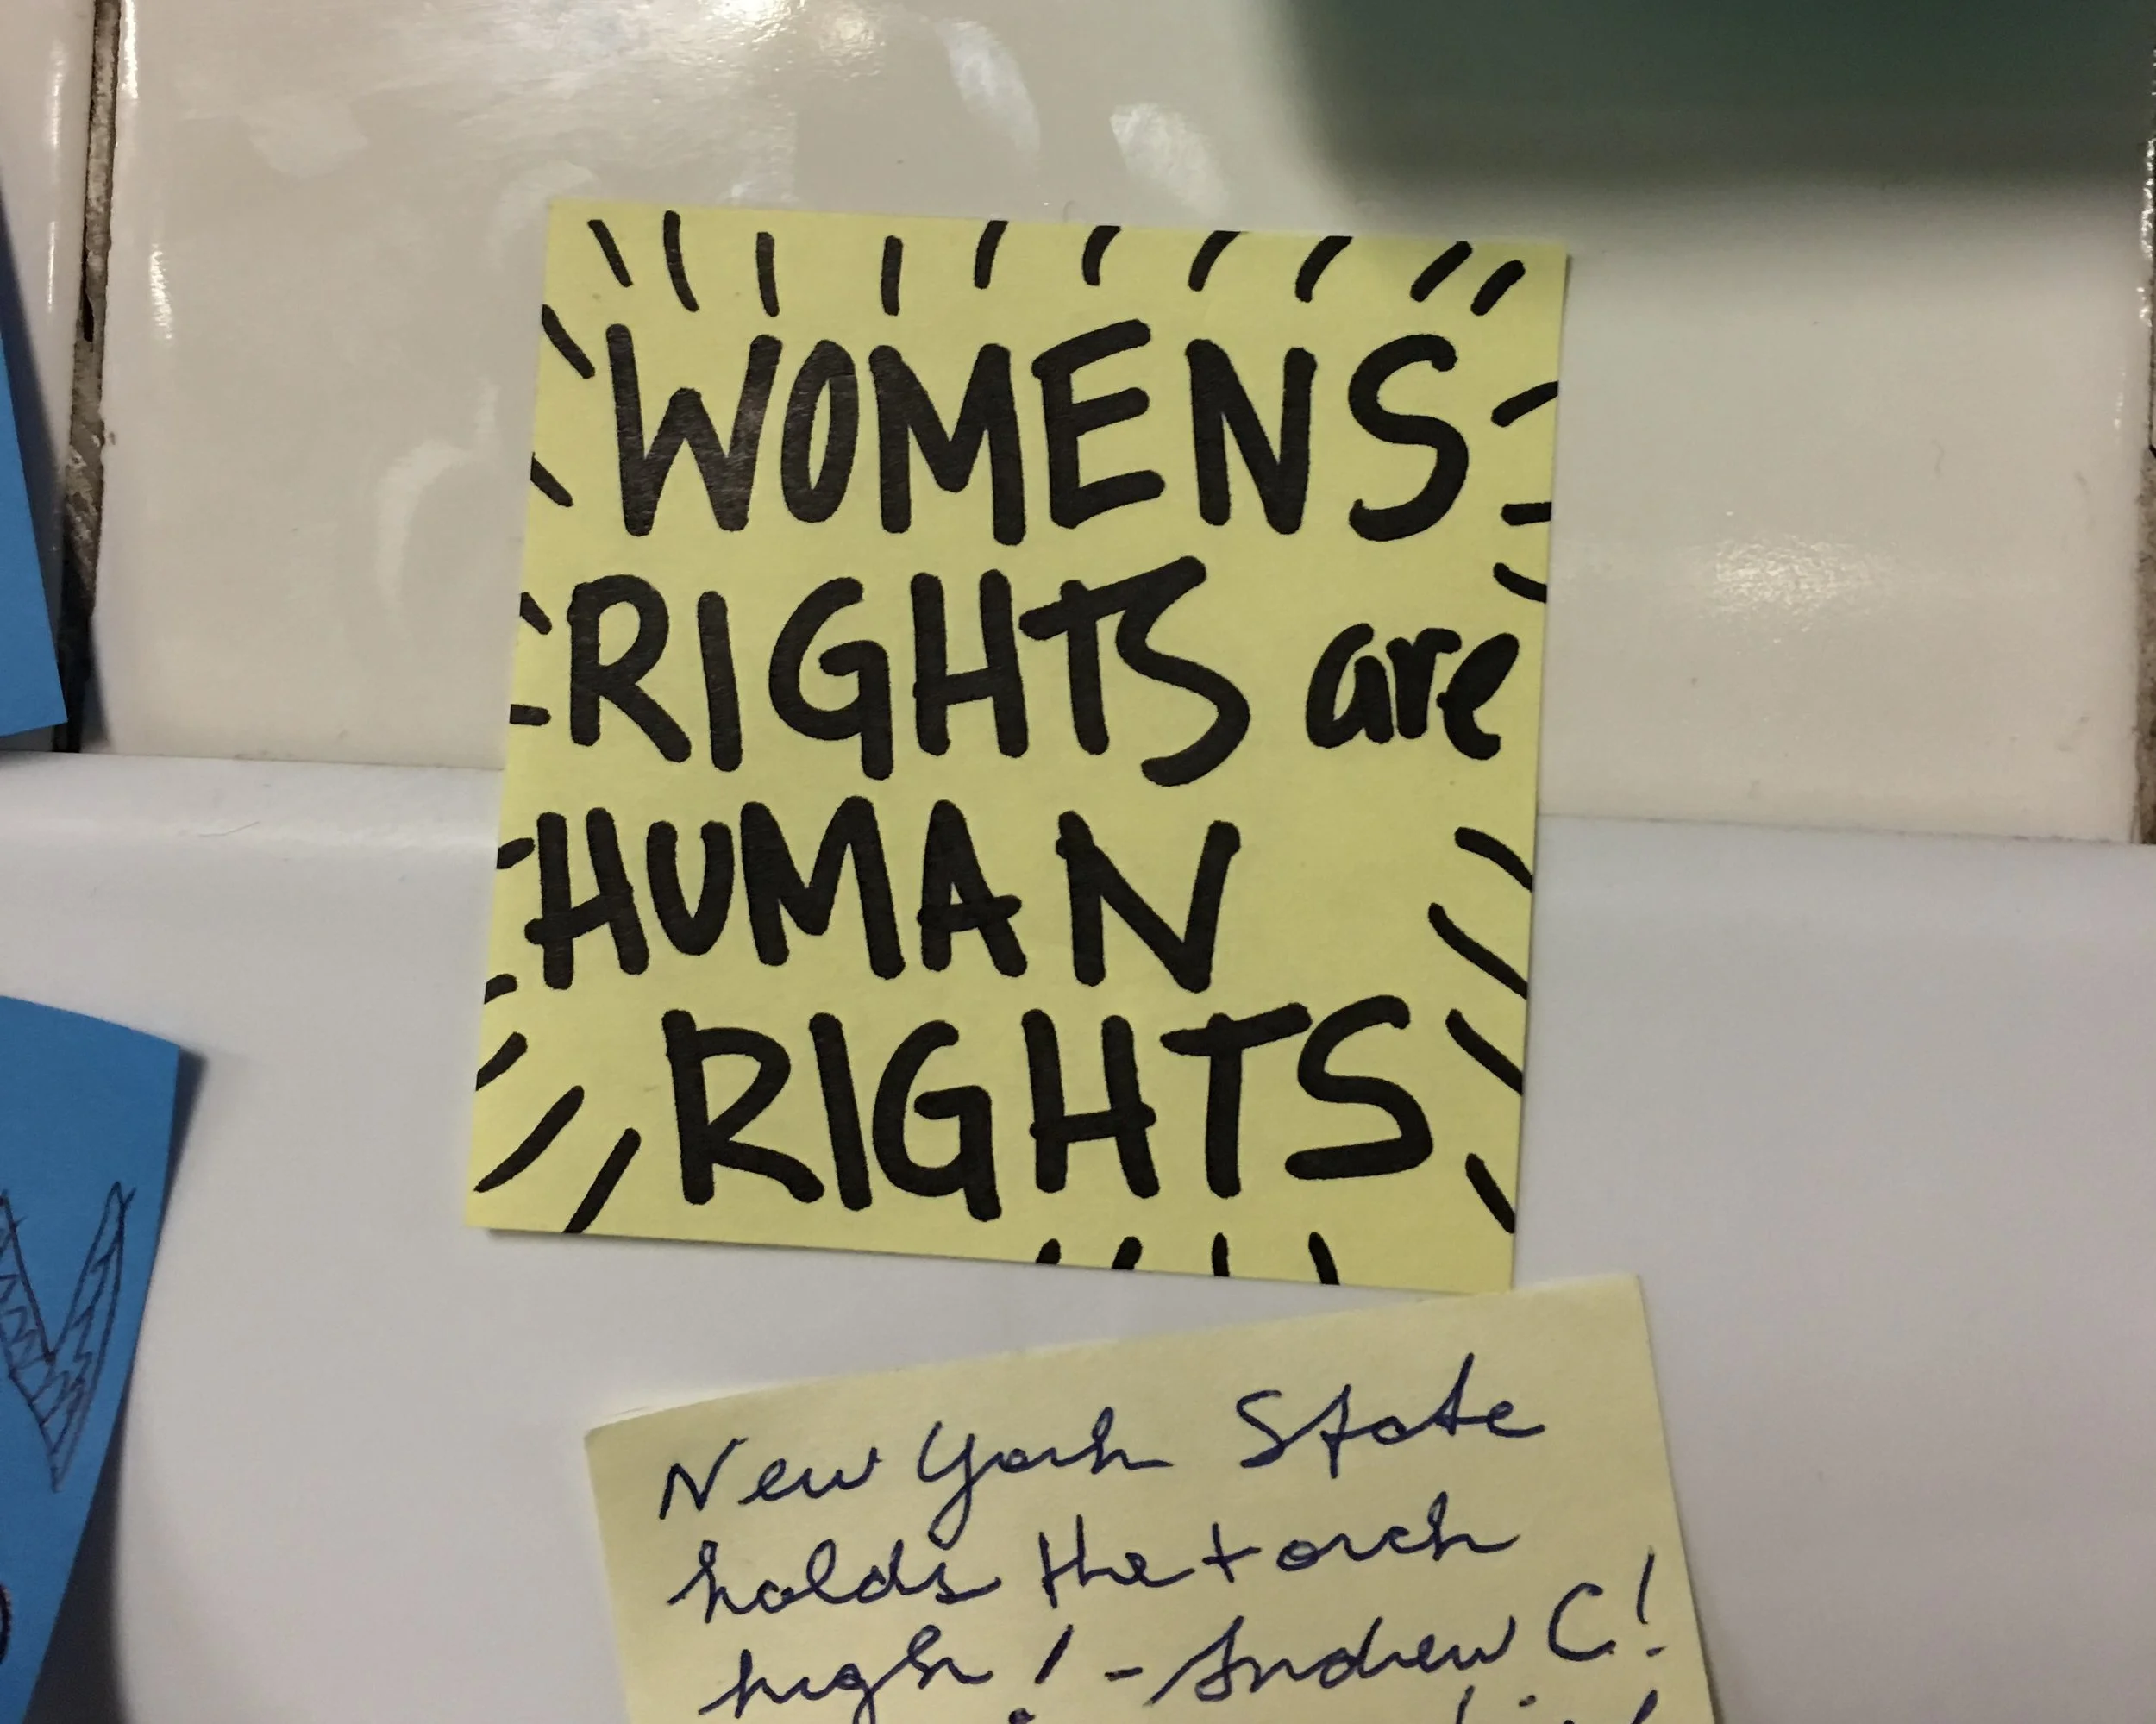 WOMENS
RIGHTS are
HUMAN
RIGHTS
New York State
holds the torch
high! - Andrew C!